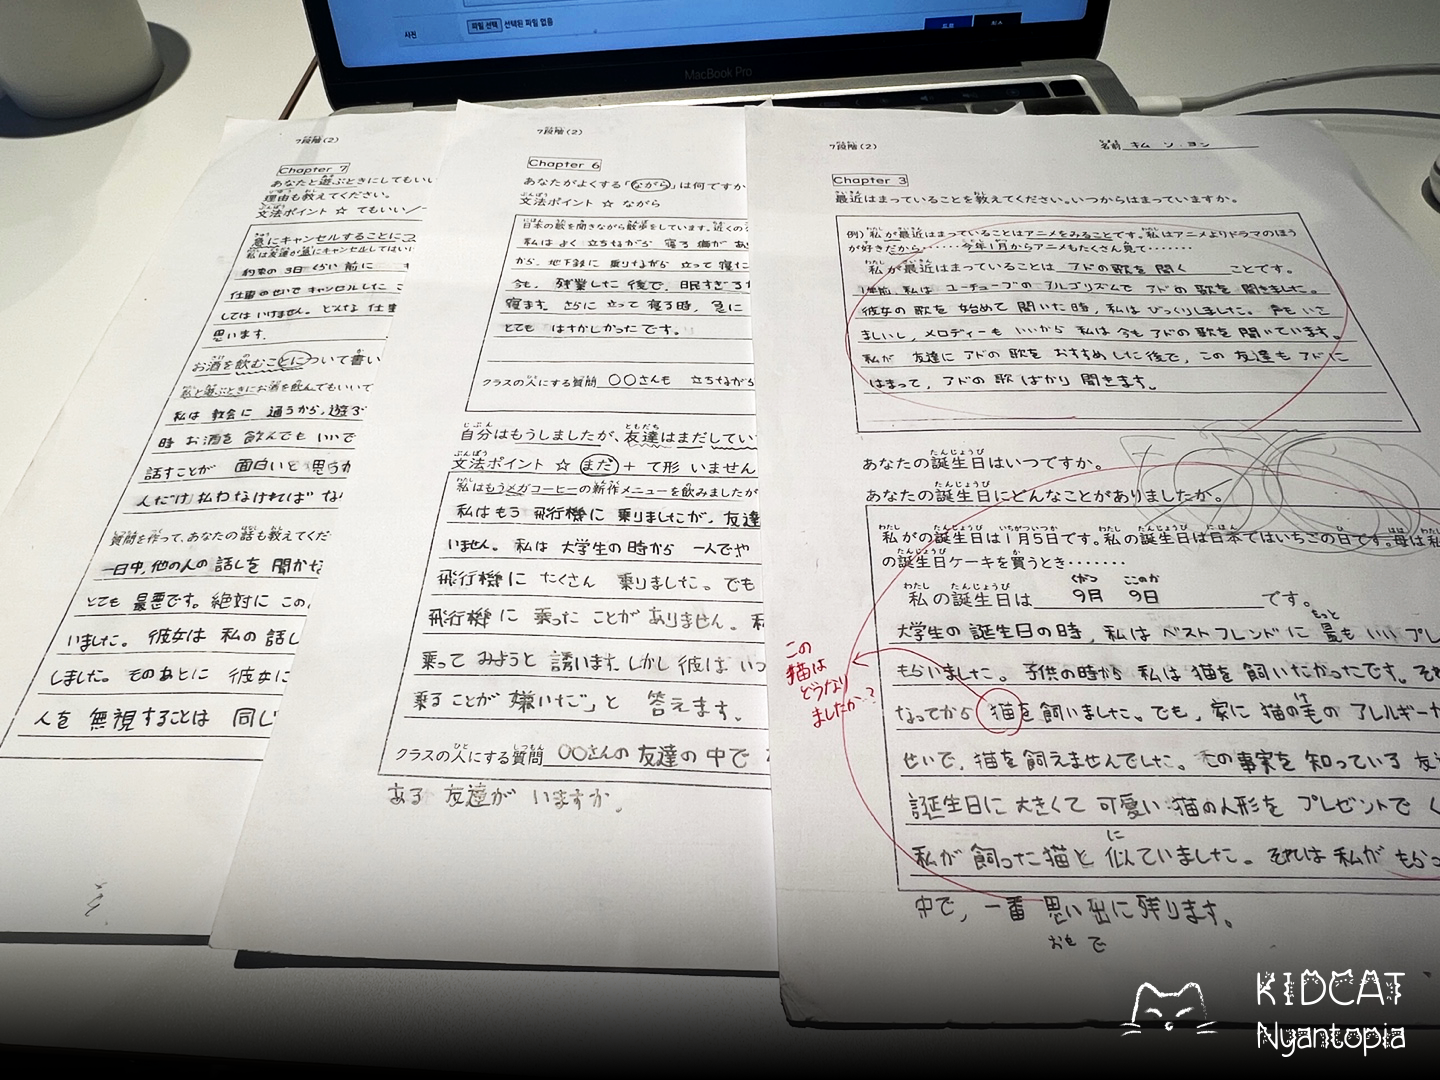 사진
파일 선택 선택된 파일 없음
MacBook Pro
7段階(2)
Chapter 7
あなたと遊ぶときにしてもいい
理由も教えてください。
文法ポイント ☆ てもいい/
急にキャンセルすることにつ
私は友達が急にキャンセルしてはい
約束の 3日くらい 前に
仕事のせいで キャンセルした こ
しては いけません。どんな 仕事
思います。
お酒を飲むことについて書い
私と遊ぶときにお酒を飲んでもいいで
私は 教会に 通うから、遊ぶ
時 お酒を 飲んでも いいで
話すことが 面白いと 思うか
人だけ 払わなければ な
質問を作って、あなたの話も教えてくだ
一日中、他の人の 話しを 聞かせ
とても 最悪です。絶対に この
いました。彼女は 私の 話し
しました。そのあとに 彼女に
人を 無視することは 同じ
7段階(2)
Chapter 6
あなたがよくする「ながら」は何ですか
文法ポイント ☆ ながら
日本の歌を聞きながら散歩をしています。近くの
私は よく 立ちながら 寝る 癖が あ
から、地下鉄に 乗りながら 立って 寝た
今も、残業した 後で、眠すぎる
寝ます。さらに 立って 寝る時、急に
とても はずかしかった です。
クラスの人にする質問 〇〇さんも 立ちながら
自分はもうしましたが、友達はまだしてい
文法ポイント ☆ まだ + て形 いません
私はもうメガコーヒーの新作メニューを飲みましたが
私は もう 飛行機に 乗りましたが、友達
いません。私は 大学生の 時から 一人で や
飛行機に たくさん 乗りました。でも
飛行機に 乗った ことが ありません。私
乗って みようと 誘います。しかし 彼は いつ
乗る ことが 嫌いだ」と 答えます。
クラスの人にする質問 〇〇さんの 友達の 中で
ある 友達が いますか。
7段階(2)
名前 キム ソ・ヨン
Chapter 3
最近はまっていることを教えてください。いつからはまっていますか。
例) 私が最近はまっていることはアニメをみることです。私はアニメよりドラマのほう
が好きだから・・・・・・今年1月からアニメもたくさん見て・・・・・・・
私が最近はまっていることは アドの歌を 聞く ことです。
1年前、私は ユーチューブの アルゴリズムで アドの 歌を 聞きました。
彼女の 歌を 始めて 聞いた 時、私は びっくりしました。声も いさ
ましいし、メロディーも いいから 私は 今も アドの 歌を 聞いています。
私が 友達に アドの 歌を おすすめ した 後で、この 友達も アドに
はまって、アドの 歌 ばかり 聞きます。
あなたの誕生日はいつですか。
あなたの誕生日にどんなことがありましたか。
私がの誕生日は1月5日です。私の誕生日は日本ではいちごの日です。母は私
の誕生日ケーキを買うとき・・・・・・・
私の誕生日は 9月 9日 です。
大学生の 誕生日の 時、私は ベストフレンドに 最も いい プレ
もらいました。子供の時から 私は 猫を 飼いたかったです。それ
なってから 猫を 飼いました。でも、家に 猫の毛の アレルギーが
せいで、猫を 飼えませんでした。その事実を 知っている 友
誕生日に 大きくて 可愛い 猫の人形を プレゼントで く
私が 飼った 猫と 似ていました。それは 私が もらっ
中で、一番 思い出に 残ります。
この
猫は
どうなり
ましたか?
KIDCAT
Nyantopia